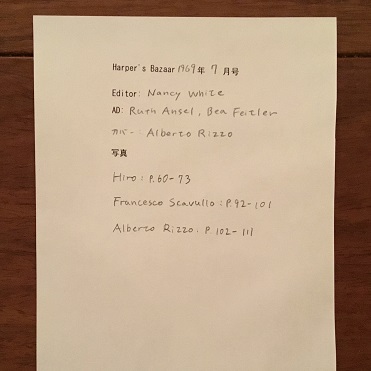 Harper's Bazaar 1969年 7月号
Editor: Nancy White
AD: Ruth Ansel, Bea Feitler
カバー: Alberto Rizzo
写真
Hiro: P.60-73
Francesco Scavullo: P.92-101
Alberto Rizzo: P 102-111